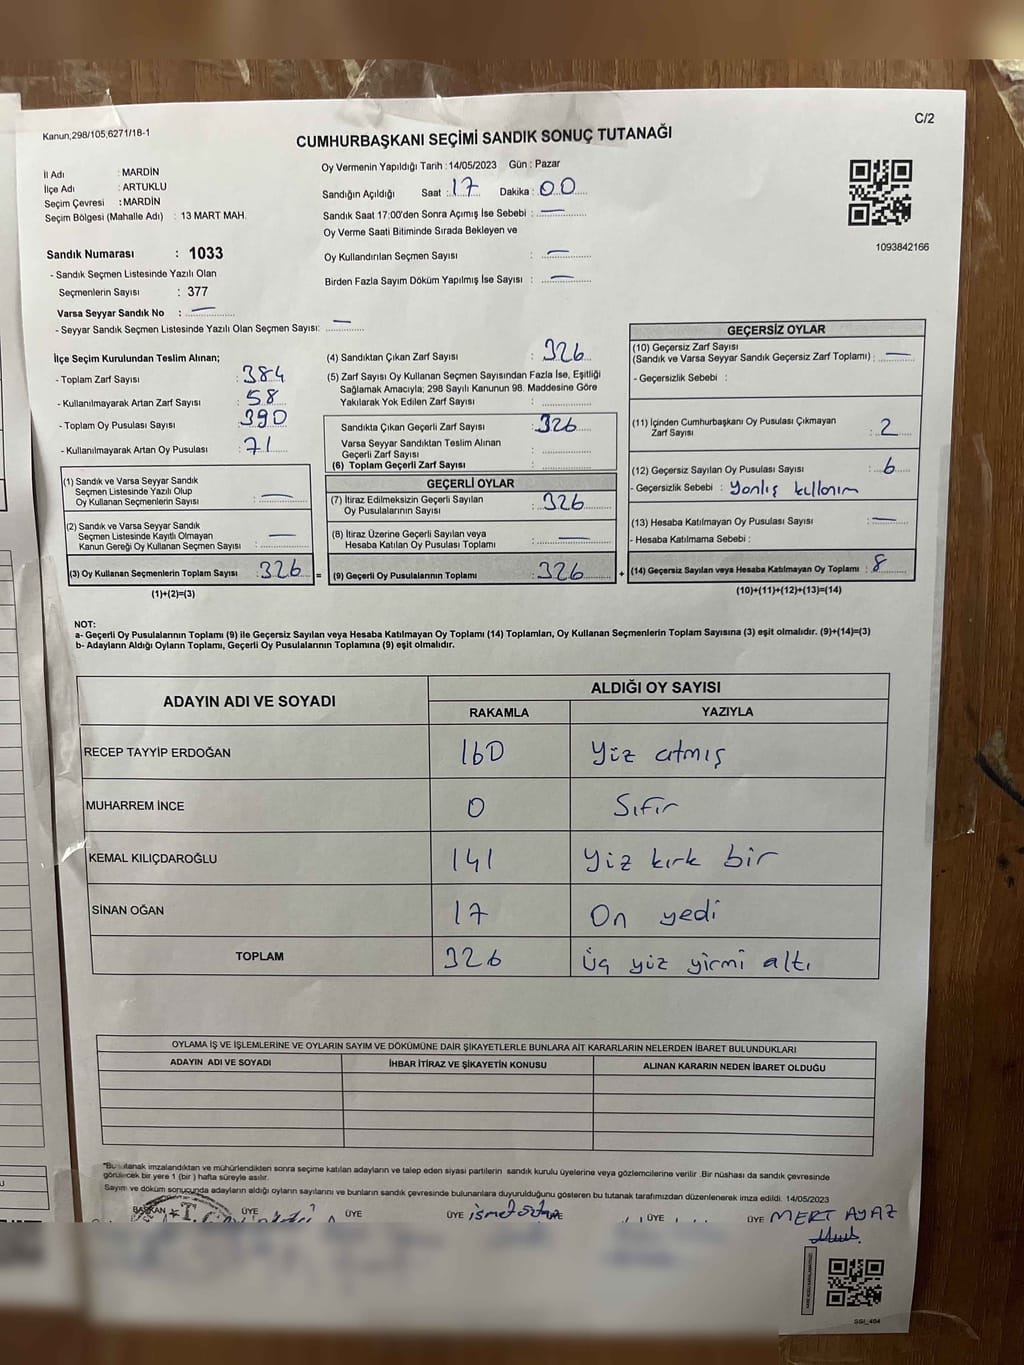 C/2
Kanun,298/105,6271/18-1
CUMHURBAŞKANI SEÇİMİ SANDIK SONUÇ TUTANAĞI
İl Adı : MARDİN
İlçe Adı : ARTUKLU
Seçim Çevresi : MARDİN
Seçim Bölgesi (Mahalle Adı) : 13 MART MAH.
Oy Vermenin Yapıldığı Tarih : 14/05/2023 Gün : Pazar
Sandığın Açıldığı Saat : 17 Dakika : 00
Sandık Saat 17:00'den Sonra Açımış İse Sebebi : —
Oy Verme Saati Bitiminde Sırada Bekleyen ve
Oy Kullandırılan Seçmen Sayısı : —
Birden Fazla Sayım Döküm Yapılmış İse Sayısı : —
1093842166
Sandık Numarası : 1033
- Sandık Seçmen Listesinde Yazılı Olan
Seçmenlerin Sayısı : 377
Varsa Seyyar Sandık No : —
- Seyyar Sandık Seçmen Listesinde Yazılı Olan Seçmen Sayısı: —
İlçe Seçim Kurulundan Teslim Alınan;
- Toplam Zarf Sayısı : 384
- Kullanılmayarak Artan Zarf Sayısı : 58
- Toplam Oy Pusulası Sayısı : 390
- Kullanılmayarak Artan Oy Pusulası : 71
(1) Sandık ve Varsa Seyyar Sandık
Seçmen Listesinde Yazılı Olup
Oy Kullanan Seçmenlerin Sayısı : —
(2) Sandık ve Varsa Seyyar Sandık
Seçmen Listesinde Kayıtlı Olmayan
Kanun Gereği Oy Kullanan Seçmen Sayısı : —
(3) Oy Kullanan Seçmenlerin Toplam Sayısı : 326 =
(1)+(2)=(3)
(4) Sandıktan Çıkan Zarf Sayısı : 326
(5) Zarf Sayısı Oy Kullanan Seçmen Sayısından Fazla İse, Eşitliği
Sağlamak Amacıyla; 298 Sayılı Kanunun 98. Maddesine Göre
Yakılarak Yok Edilen Zarf Sayısı :
Sandıkta Çıkan Geçerli Zarf Sayısı : 326
Varsa Seyyar Sandıktan Teslim Alınan
Geçerli Zarf Sayısı :
(6) Toplam Geçerli Zarf Sayısı :
GEÇERLİ OYLAR
(7) İtiraz Edilmeksizin Geçerli Sayılan
Oy Pusulalarının Sayısı : 326
(8) İtiraz Üzerine Geçerli Sayılan veya
Hesaba Katılan Oy Pusulası Toplamı : —
(9) Geçerli Oy Pusulalarının Toplamı : 326 +
GEÇERSİZ OYLAR
(10) Geçersiz Zarf Sayısı
(Sandık ve Varsa Seyyar Sandık Geçersiz Zarf Toplamı) : —
- Geçersizlik Sebebi :
(11) İçinden Cumhurbaşkanı Oy Pusulası Çıkmayan
Zarf Sayısı : 2
(12) Geçersiz Sayılan Oy Pusulası Sayısı : 6
- Geçersizlik Sebebi : Yanlış kullanım
(13) Hesaba Katılmayan Oy Pusulası Sayısı : —
- Hesaba Katılmama Sebebi :
(14) Geçersiz Sayılan veya Hesaba Katılmayan Oy Toplamı : 8
(10)+(11)+(12)+(13)=(14)
NOT:
a- Geçerli Oy Pusulalarının Toplamı (9) ile Geçersiz Sayılan veya Hesaba Katılmayan Oy Toplamı (14) Toplamları, Oy Kullanan Seçmenlerin Toplam Sayısına (3) eşit olmalıdır. (9)+(14)=(3)
b- Adayların Aldığı Oyların Toplamı, Geçerli Oy Pusulalarının Toplamına (9) eşit olmalıdır.
ADAYIN ADI VE SOYADI
ALDIĞI OY SAYISI
RAKAMLA YAZIYLA
RECEP TAYYİP ERDOĞAN 160 Yiz atmış
MUHARREM İNCE 0 Sıfır
KEMAL KILIÇDAROĞLU 141 Yiz kırk bir
SİNAN OĞAN 17 On yedi
TOPLAM 326 Üç yiz yirmi altı
OYLAMA İŞ VE İŞLEMLERİNE VE OYLARIN SAYIM VE DÖKÜMÜNE DAİR ŞİKAYETLERLE BUNLARA AİT KARARLARIN NELERDEN İBARET BULUNDUKLARI
ADAYIN ADI VE SOYADI İHBAR İTİRAZ VE ŞİKAYETİN KONUSU ALINAN KARARIN NEDEN İBARET OLDUĞU
*Bu tutanak imzalandıktan ve mühürlendikten sonra seçime katılan adayların ve talep eden siyasi partilerin sandık kurulu üyelerine veya gözlemcilerine verilir .Bir nüshası da sandık çevresinde
görülecek bir yere 1 (bir ) hafta süreyle asılır.
Sayım ve döküm sonucunda adayların aldığı oyların sayılarını ve bunların sandık çevresinde bulunanlara duyurulduğunu gösteren bu tutanak tarafımızdan düzenlenerek imza edildi. 14/05/2023
BAŞKAN ÜYE ÜYE ÜYE ismet ÜYE ÜYE ÜYE MERT AYAZ
SSI_404